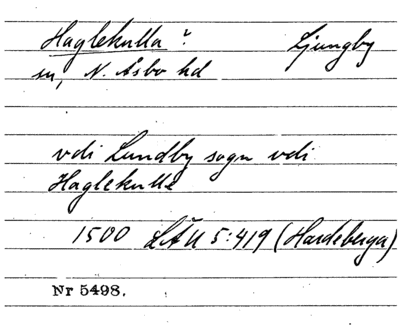 Haglekulla? Ljungby
sn, N. Åsbo hd
vdi Lundby sogn vdi
Haglekulle
1500 LÄU 5:419 (Hardeberga)
Nr 5498.